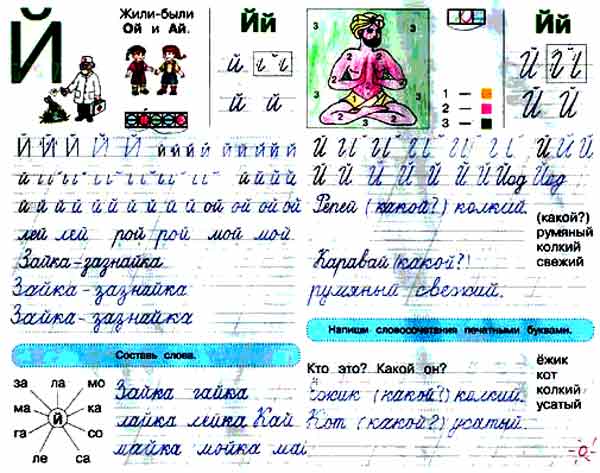 Й
Жили-были
Ой и Ай.
Йй
й
й й
Й Й Й Й Й й й й й й й й й
й й й й й
й й й й й й й й й ой ой ой ой
лей лей рой рой мой мой
Зайка-зазнайка
Зайка-зазнайка
Зайка-зазнайка
Составь слова.
за ла мо
ма й ка
га со
ле са
Зайка гайка
лайка лейка Кай
майка мойка май
3 3
2 2
1
2
3 3
3
1 —
2 —
3 —
Йй
Й
Й Й
Й Й Й Й
Й Й Й Й Й Й Йод Йод
Репей (какой?) колкий.
Каравай (какой?)
румяный свежий.
(какой?)
румяный
колкий
свежий
Напиши словосочетания печатными буквами.
Кто это? Какой он?
Ёжик (какой?) колкий.
Кот (какой?) усатый.
ёжик
кот
колкий
усатый